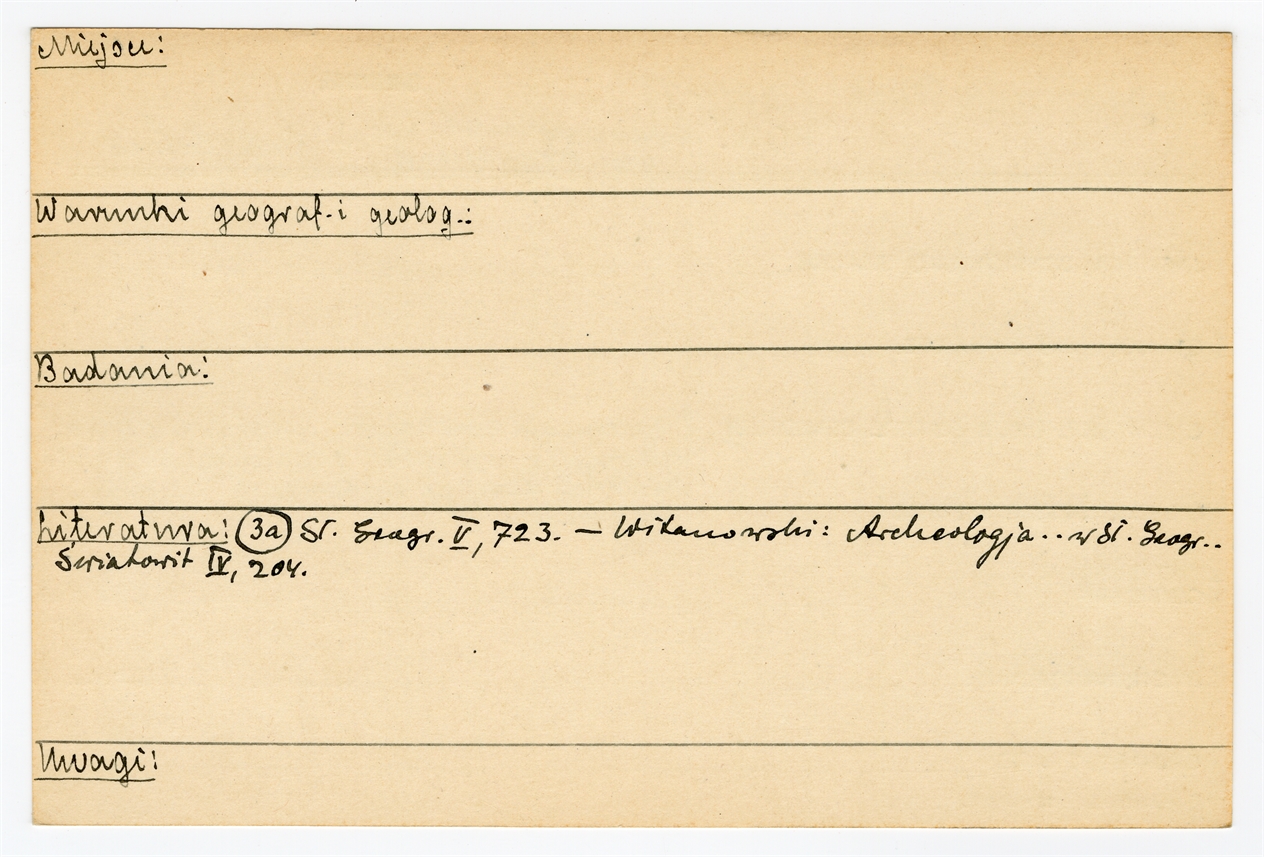 Miejsce:
Warunki geograf. i geolog.:
Badania:
Literatura: (3a) Sł. Geogr. V, 723. – Witanowski: Archeologja.. w Sł. Geogr..
Światowit IV, 204.
Uwagi: